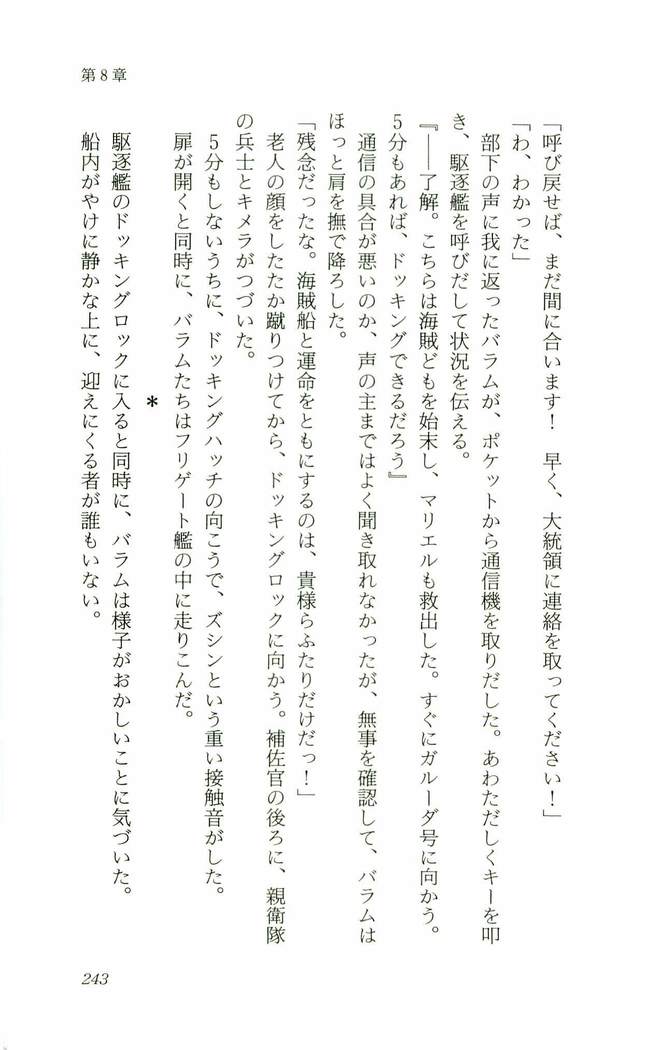 第8章
「呼び戻せば、まだ間に合います！　早く、大統領に連絡を取ってください！」
「わ、わかった」
部下の声に我に返ったバラムが、ポケットから通信機を取りだした。あわただしくキーを叩
き、駆逐艦を呼びだして状況を伝える。
『――了解。こちらは海賊どもを始末し、マリエルも救出した。すぐにガルーダ号に向かう。
5分もあれば、ドッキングできるだろう』
通信の具合が悪いのか、声の主まではよく聞き取れなかったが、無事を確認して、バラムは
ほっと肩を撫で降ろした。
「残念だったな。海賊船と運命をともにするのは、貴様らふたりだけだっ！」
老人の顔をしたたか蹴りつけてから、ドッキングロックに向かう。補佐官の後ろに、親衛隊
の兵士とキメラがつづいた。
5分もしないうちに、ドッキングハッチの向こうで、ズシンという重い接触音がした。
扉が開くと同時に、バラムたちはフリゲート艦の中に走りこんだ。
＊
駆逐艦のドッキングロックに入ると同時に、バラムは様子がおかしいことに気づいた。
船内がやけに静かな上に、迎えにくる者が誰もいない。
243